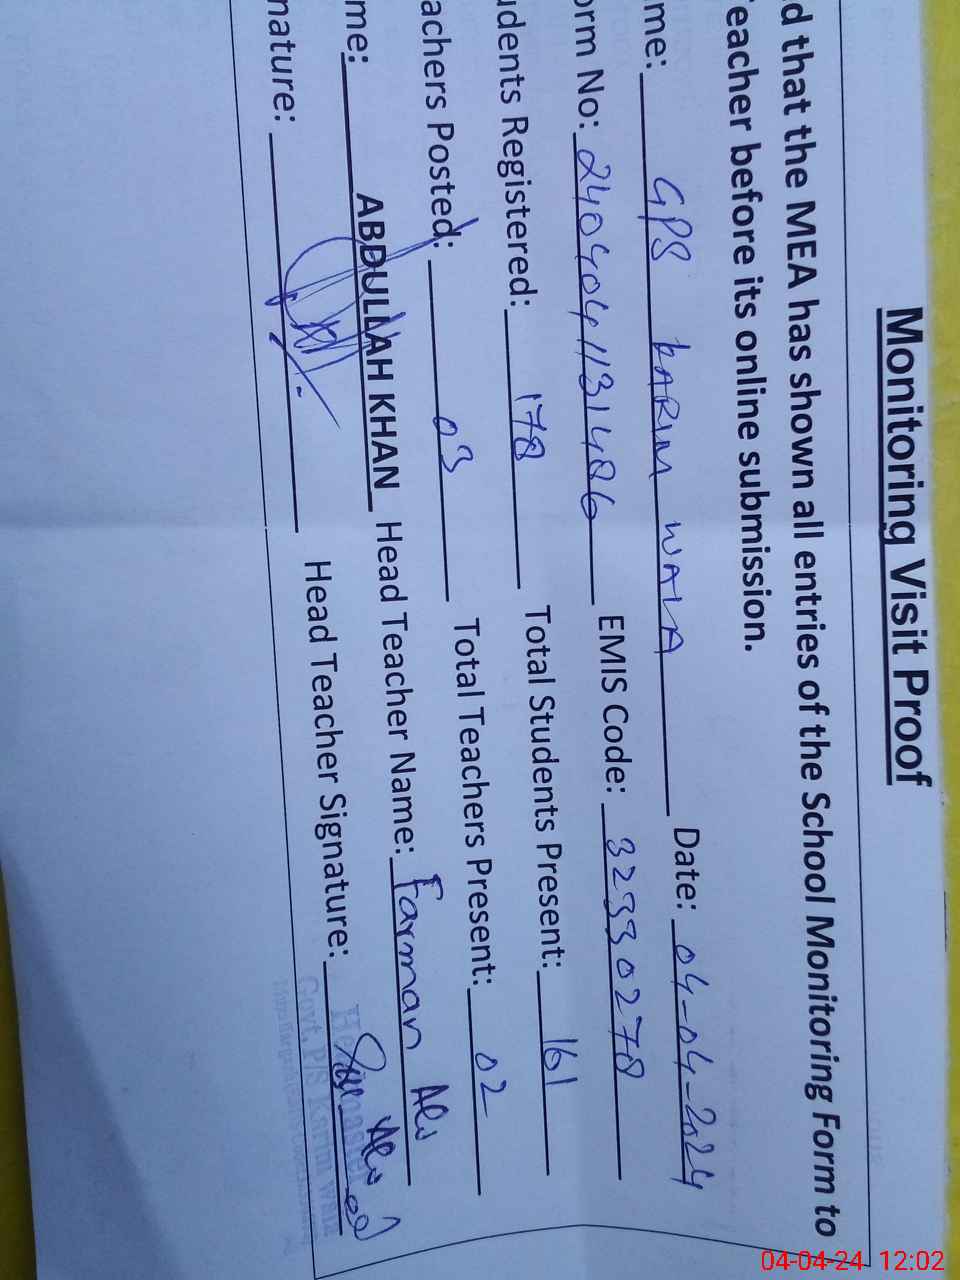 Monitoring Visit Proof
d that the MEA has shown all entries of the School Monitoring Form to
Teacher before its online submission.
me: GPS KARIM WALA Date: 04-04-2024
orm No: 2404041131486 EMIS Code: 32330278
udents Registered: 178 Total Students Present: 161
achers Posted: 03 Total Teachers Present: 02
me: ABDULLAH KHAN Head Teacher Name: Farman Ali
nature: Head Teacher Signature:
Govt. P/S Karim wala
04-04-24 12:02